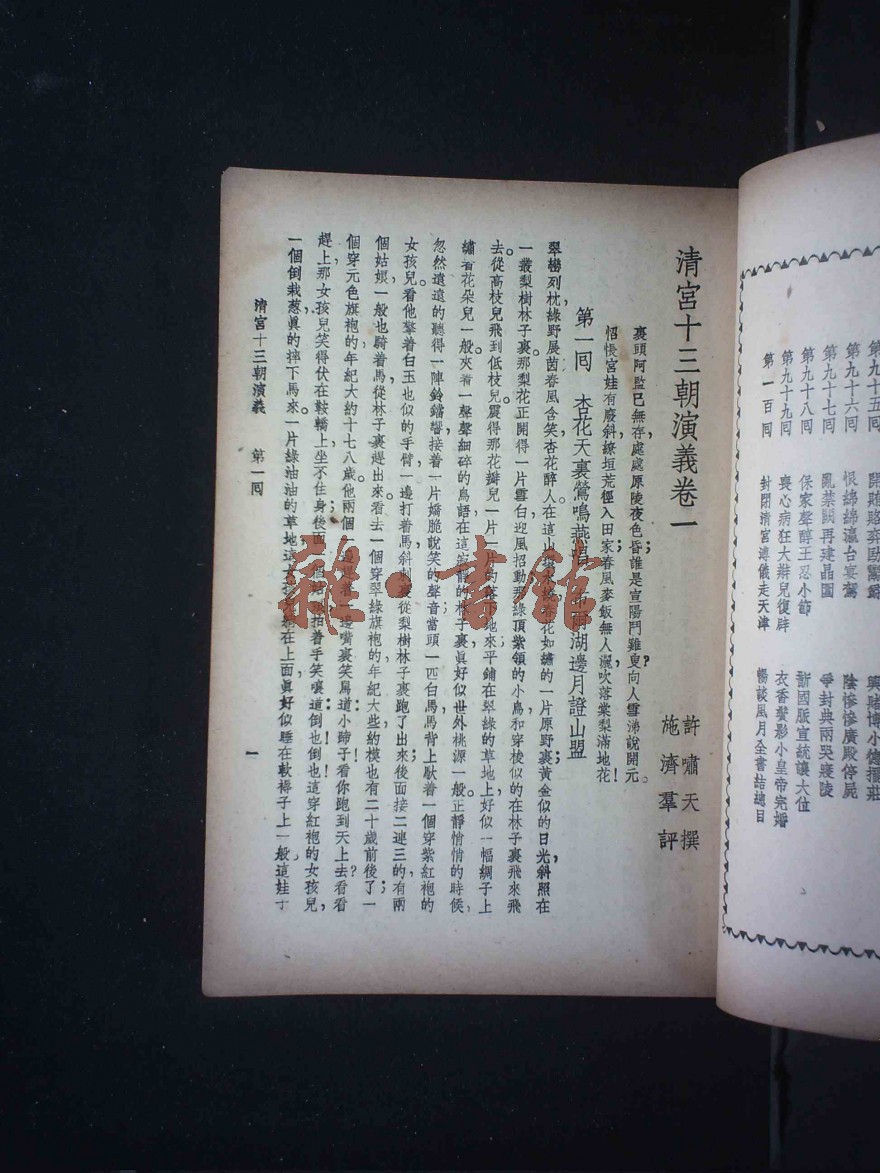 第九十五回 開賄賂奕劻鬻爵 興賭博小德擺莊
第九十六回 恨綿綿瀛台宴駕 陰慘慘廣殿停屍
第九十七回 亂禁闕再建晶園 爭封典兩哭寢陵
第九十八回 保家聲醇王忍小節 斷國脈宣統讓大位
第九十九回 喪心病狂大辮兒復辟 衣香鬢影小皇帝完婚
第一百回 封閉清宮溥儀走天津 暢談風月全書結總目
二
清宮十三朝演義卷一
許嘯天撰
施濟羣評
裹頭阿監已無存,處處原陵夜色昏;誰是宣陽門雞叟?向人雲涕說開元。
怊悵宮娃有廢斜,繚垣荒徑入田家;春風麥飯無人灑,吹落棠梨滿地花!
第一回 杏花天裏鶯鳴燕唱 布爾湖邊月證山盟
翠巒列枕,綠野展茵,春風含笑,杏花醉人,在這山 花如繡的一片原野裏,黃金似的日光斜照在
一叢梨樹林子裏,那梨花正開得一片雲白,迎風招動,那綠頂紫領的小鳥和穿梭似的在林子裏飛來飛
去。從高枝兒飛到低枝兒,震得那花瓣兒一片一片的落下地來,平鋪在翠綠的草地上;好似一幅綢子上
繡着花朵兒一般。夾着一聲聲細碎的鳥語,在這寂靜的林子裏,眞好似世外桃源一般。正靜悄悄的時候,
忽然遠遠的聽得一陣鈴鐺響,接着一片嬌脆說笑的聲音;當頭一匹白馬,馬背上馱着一個穿紫紅袍的
女孩兒。看他擎着白玉也似的手臂,一邊打着馬,斜刺裏從梨樹林子裏跑了出來;後面接二連三的有兩
個姑娘一般也騎着馬,從林子裏趕出來。看去一個穿翠綠旗袍的年紀大些,約模也有二十歲前後了;一
個穿元色旗袍的,年紀大約十七八歲。他兩個一邊趕着,一邊嘴裏笑罵道:小蹄子!看你跑到天上去?看看
趕上,那女孩兒笑得伏在鞍轎上坐不住身;後面 個姑娘拍着手笑嚷道:倒也!倒也!這穿紅袍的女孩兒,
一個倒栽葱,眞的摔下馬來。一片綠油油的草地,這女孩兒躺在上面,眞好似睡在軟褥子上一般。這娃
清宮十三朝演義 第一回
一
雜·書館